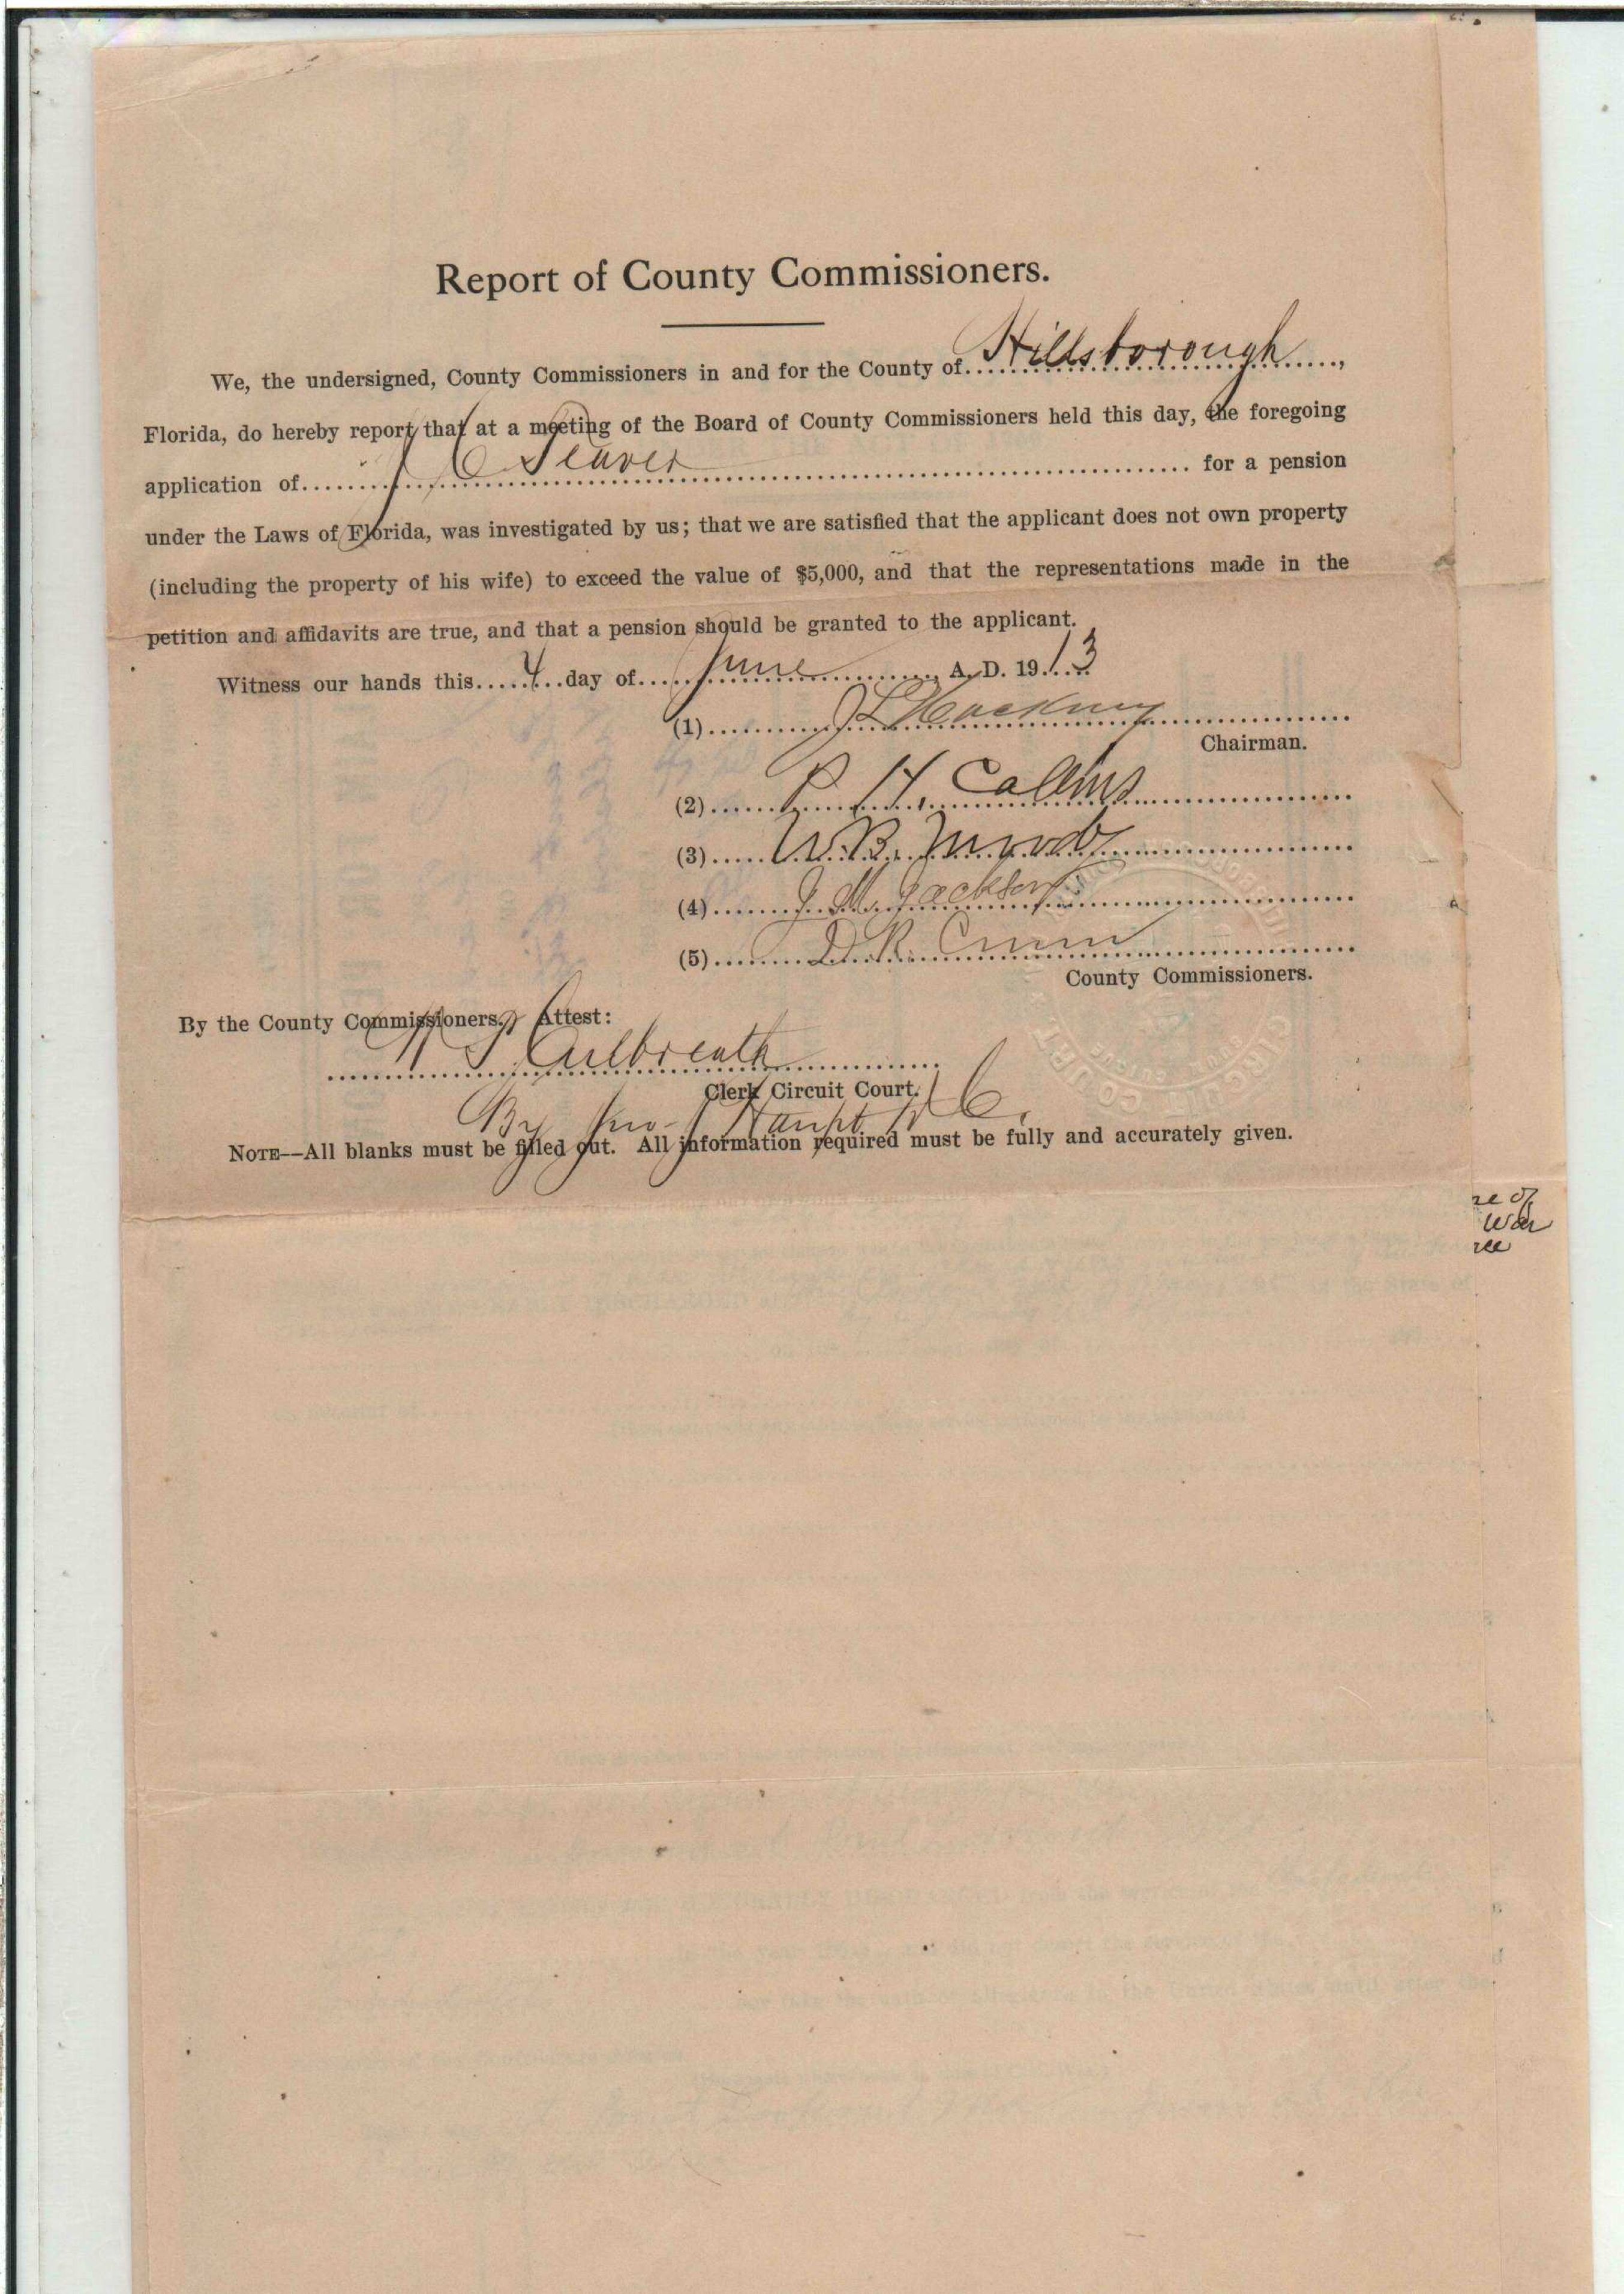 Report of County Commissioners.
We, the undersigned, County Commissioners in and for the County of Hillsborough,
Florida, do hereby report that at a meeting of the Board of County Commissioners held this day, the foregoing
application of J C for a pension
under the Laws of Florida, was investigated by us; that we are satisfied that the applicant does not own property
(including the property of his wife) to exceed the value of $5,000, and that the representations made in the
petition and affidavits are true, and that a pension should be granted to the applicant.
Witness our hands this 4 day of June A. D. 1913
(1) J L Hackney
Chairman.
(2) P. H. Collins
(3) W. B. Moody
(4) J. M. Jackson
(5) D. R. Crum
County Commissioners.
By the County Commissioners. Attest:
Culbreath
Clerk Circuit Court.
By Jno Haupt D C.
NOTE--All blanks must be filled out. All information required must be fully and accurately given.
re of
War
ree